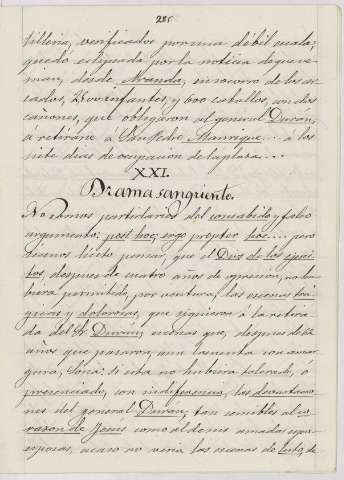 285
tillería, verificados por una débil escala;
quedó eclipsada por la noticia de que ve-
nian, desde Aranda, en socorro de los si-
tiados, 2500 infantes, y 600 caballos, con dos
cañones, que obligaron al general Durán,
á retirarse á San Pedro Manrique... á los
siete dias de ocupacion de la plaza...
XXI.
Drama sangriento.
No somos partidarios del consabido y falso
argumento: post hoc; ergo propter hoc... pero
tenemos lícito pensar, que el Dios de los ejérci-
tos, despues de cuatro años de opresion, no hu-
biera permitido, por ventura, las escenas trá-
gicas y dolorosas, que siguieron á la retira-
da del Sr. Durán; escenas que, despues de
años que pasaron, aun lamenta con amar-
gura, Soria: si esta no hubiera tolerado, ó
presenciado, con indiferencia, las devastacio-
nes del general Durán, tan sensibles al co-
razon de Jesus como al de sus amadas
esposas, acaso no vería las escenas de luto, de